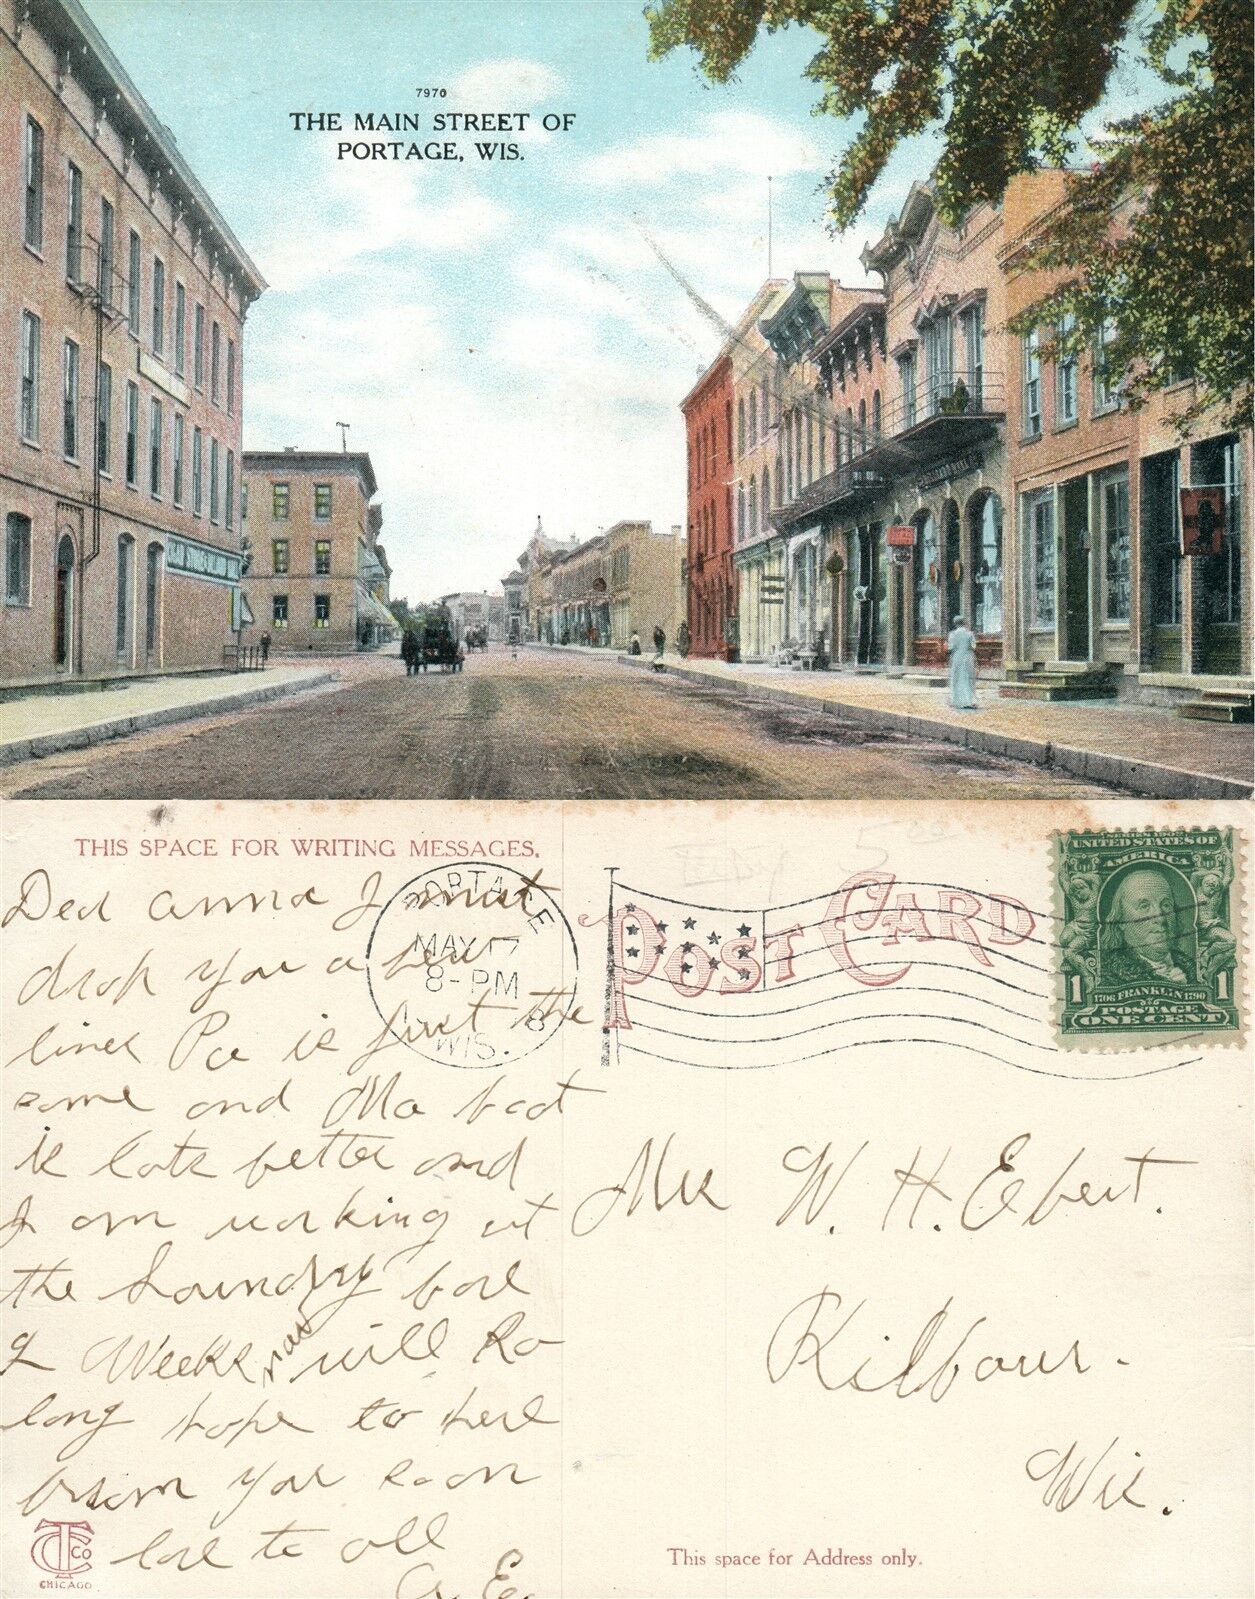 7970
THE MAIN STREET OF
PORTAGE, WIS.
THIS SPACE FOR WRITING MESSAGES.
Dear anna I must
drop you a few
lines Pa is just the
same and Ma foot
is lots better and
I am working at
the Laundry for
2 Weeks now will So
long hope to here
from you soon
love to all
TC CO
CHICAGO
PORTAGE
MAY 17
8-PM
WIS.
POST CARD
SERIES 1902
UNITED STATES OF
AMERICA
1 1706 FRANKLIN 1790 1
POSTAGE
ONE CENT
Mrs W. H. Ebert.
Kilbourn.
Wis.
This space for Address only.